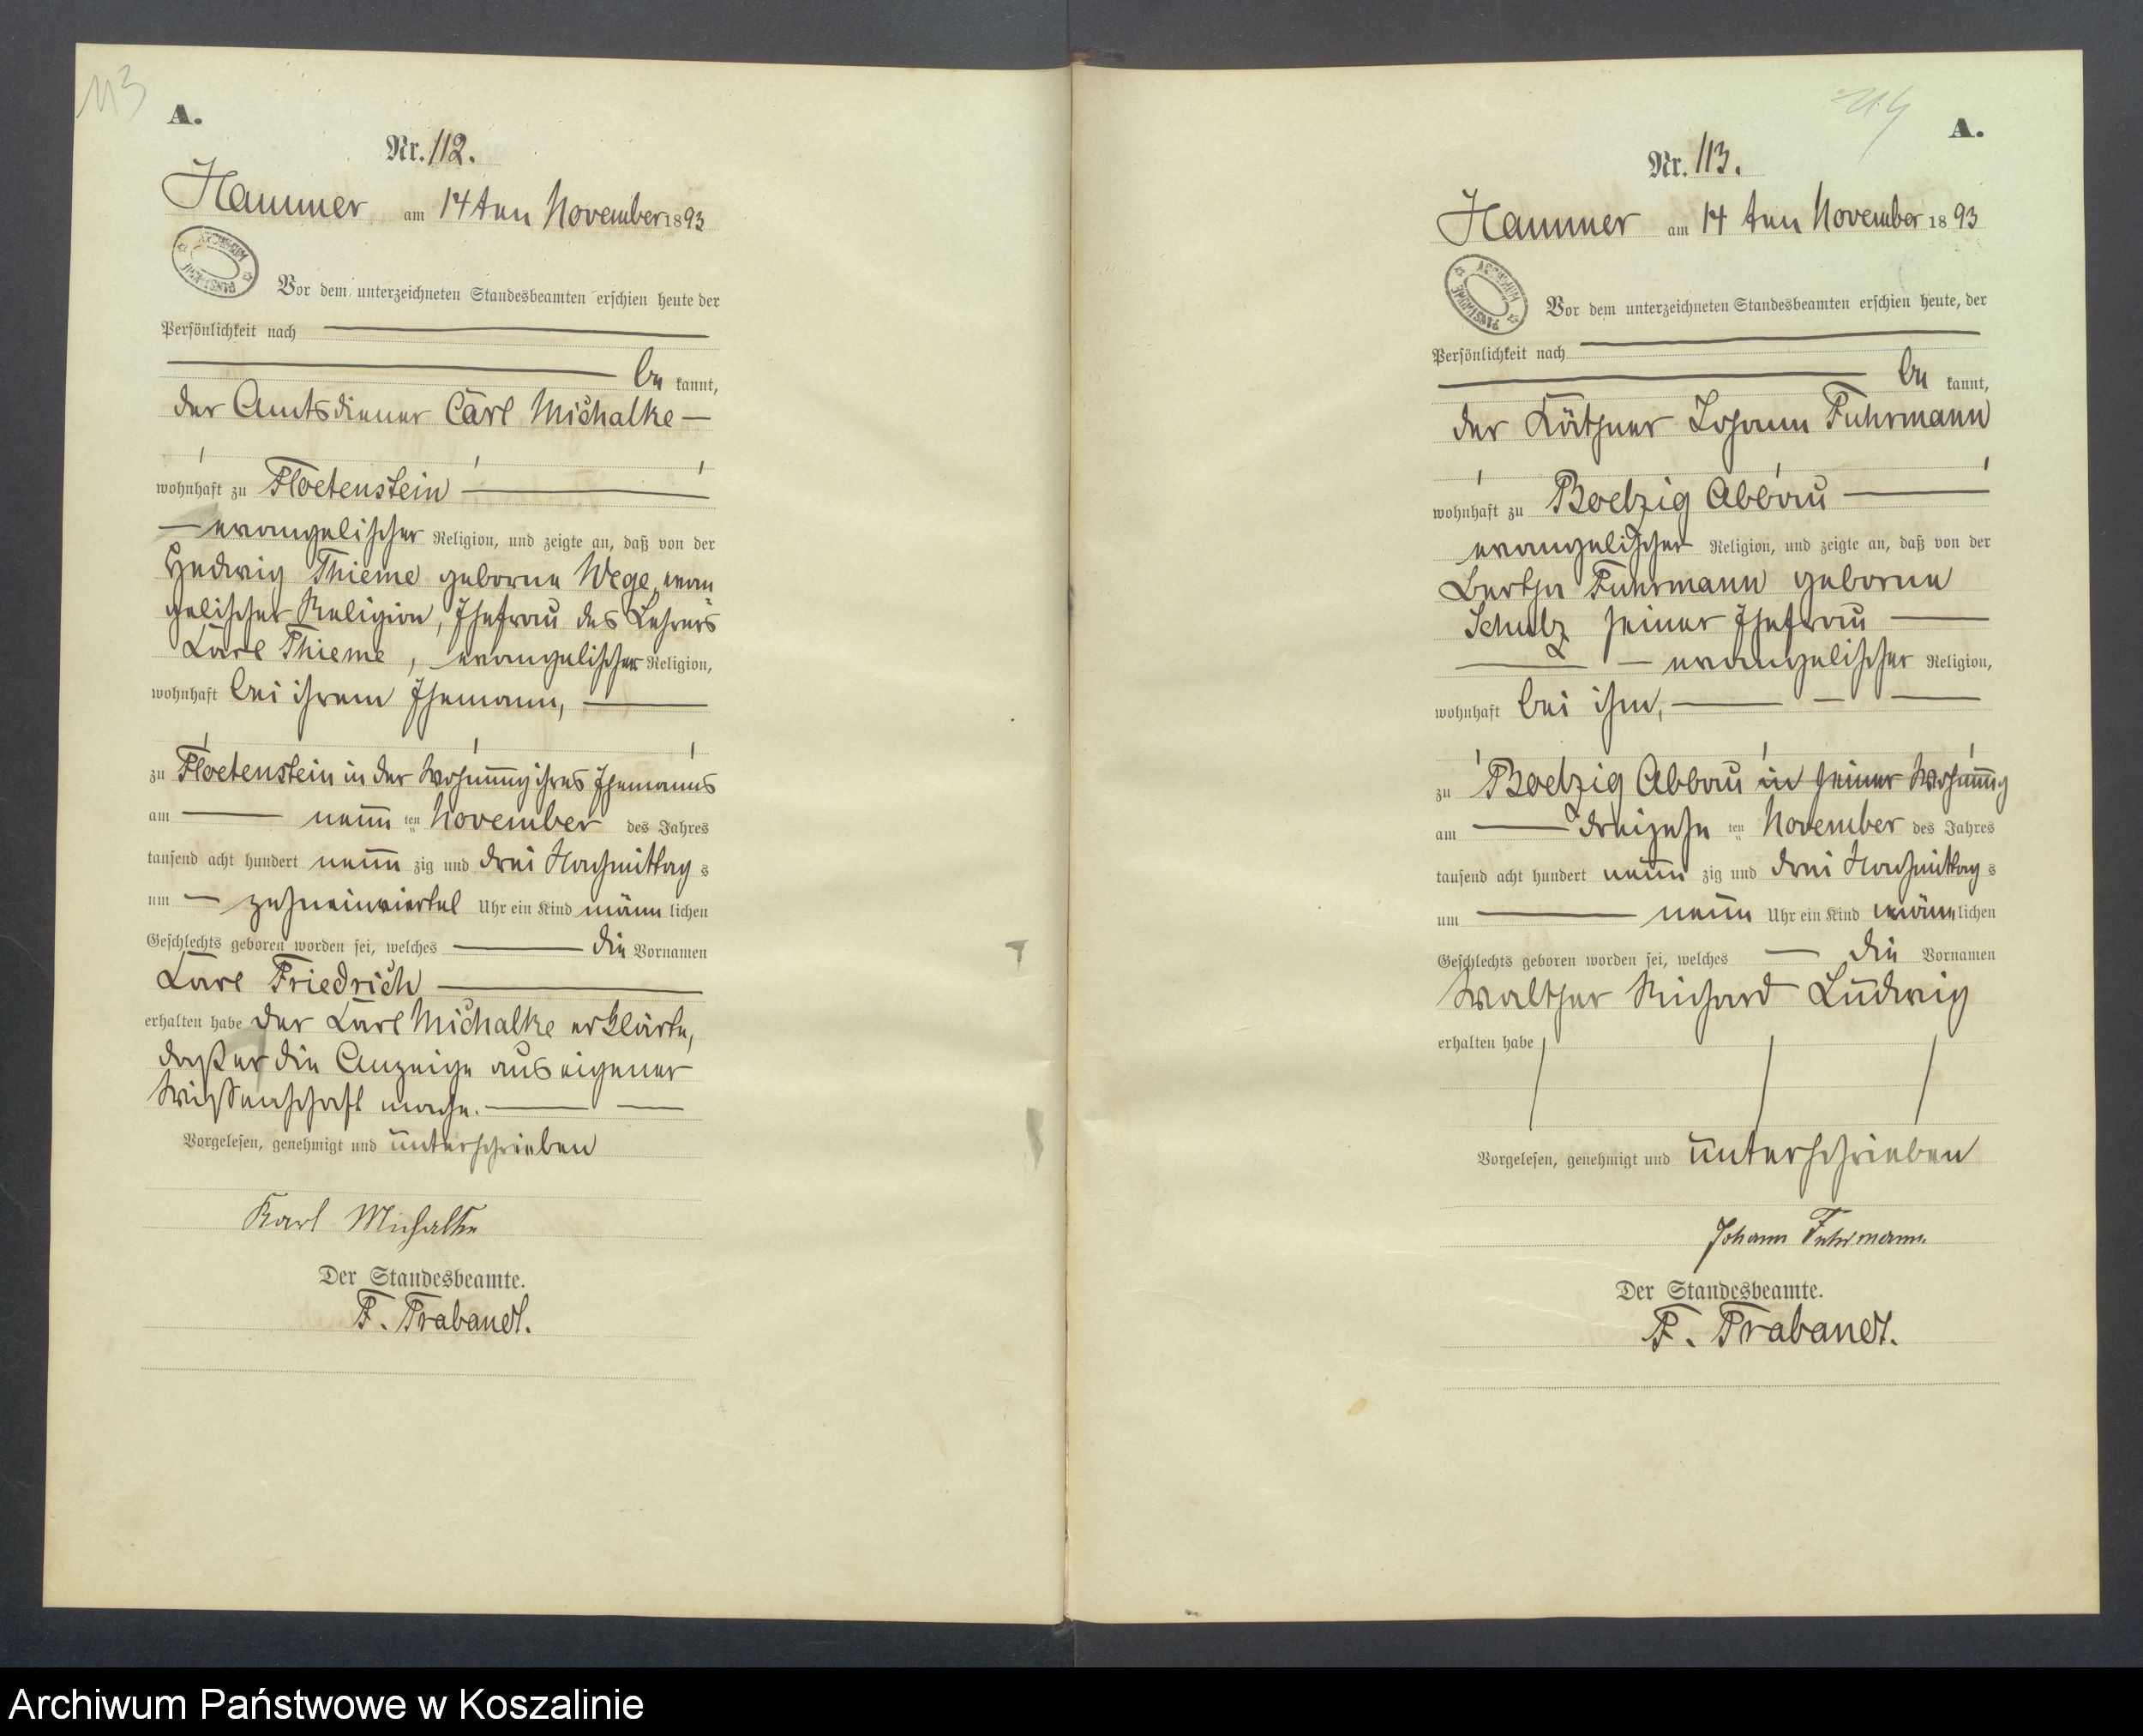 113
A.
Nr. 112.
Hammer am 14ten November 1893
Vor dem unterzeichneten Standesbeamten erschien heute der
Persönlichkeit nach
be kannt,
der Amtsdiener Carl Michalke
wohnhaft zu Floetenstein
evangelischer Religion, und zeigte an, daß von der
Hedwig Thieme geborne Wege, evan
gelischer Religion, Ehefrau des Lehrers
Carl Thieme, evangelischer Religion,
wohnhaft bei ihrem Ehemann,
zu Floetenstein in der Wohnung ihres Ehemanns
am neun ten November des Jahres
tausend acht hundert neun zig und drei Nachmittag s
um zehneinviertel Uhr ein Kind männ lichen
Geschlechts geboren worden sei, welches die Vornamen
Carl Friedrich
erhalten habe der Carl Michalke erklärte,
daß er die Anzeige aus eigener
Wissenschaft mache.
Vorgelesen, genehmigt und unterschrieben
Karl Michalke
Der Standesbeamte.
F. Trabandt.
114
A.
Nr. 113.
Hammer am 14 ten November 1893
Vor dem unterzeichneten Standesbeamten erschien heute, der
Persönlichkeit nach
be kannt,
der Käthner Johann Fuhrmann
wohnhaft zu Boelzig Abbau
evangelischer Religion, und zeigte an, daß von der
Bertha Fuhrmann geborne
Schulz seiner Ehefrau
evangelischer Religion,
wohnhaft bei ihm,
zu Boelzig Abbau in seiner Wohnung
am dreizehn ten November des Jahres
tausend acht hundert neun zig und drei Nachmittag s
um neun Uhr ein Kind männ lichen
Geschlechts geboren worden sei, welches die Vornamen
Walther Richard Ludwig
erhalten habe
Vorgelesen, genehmigt und unterschrieben
Johann Fuhrmann
Der Standesbeamte.
F. Trabandt.
Archiwum Państwowe w Koszalinie